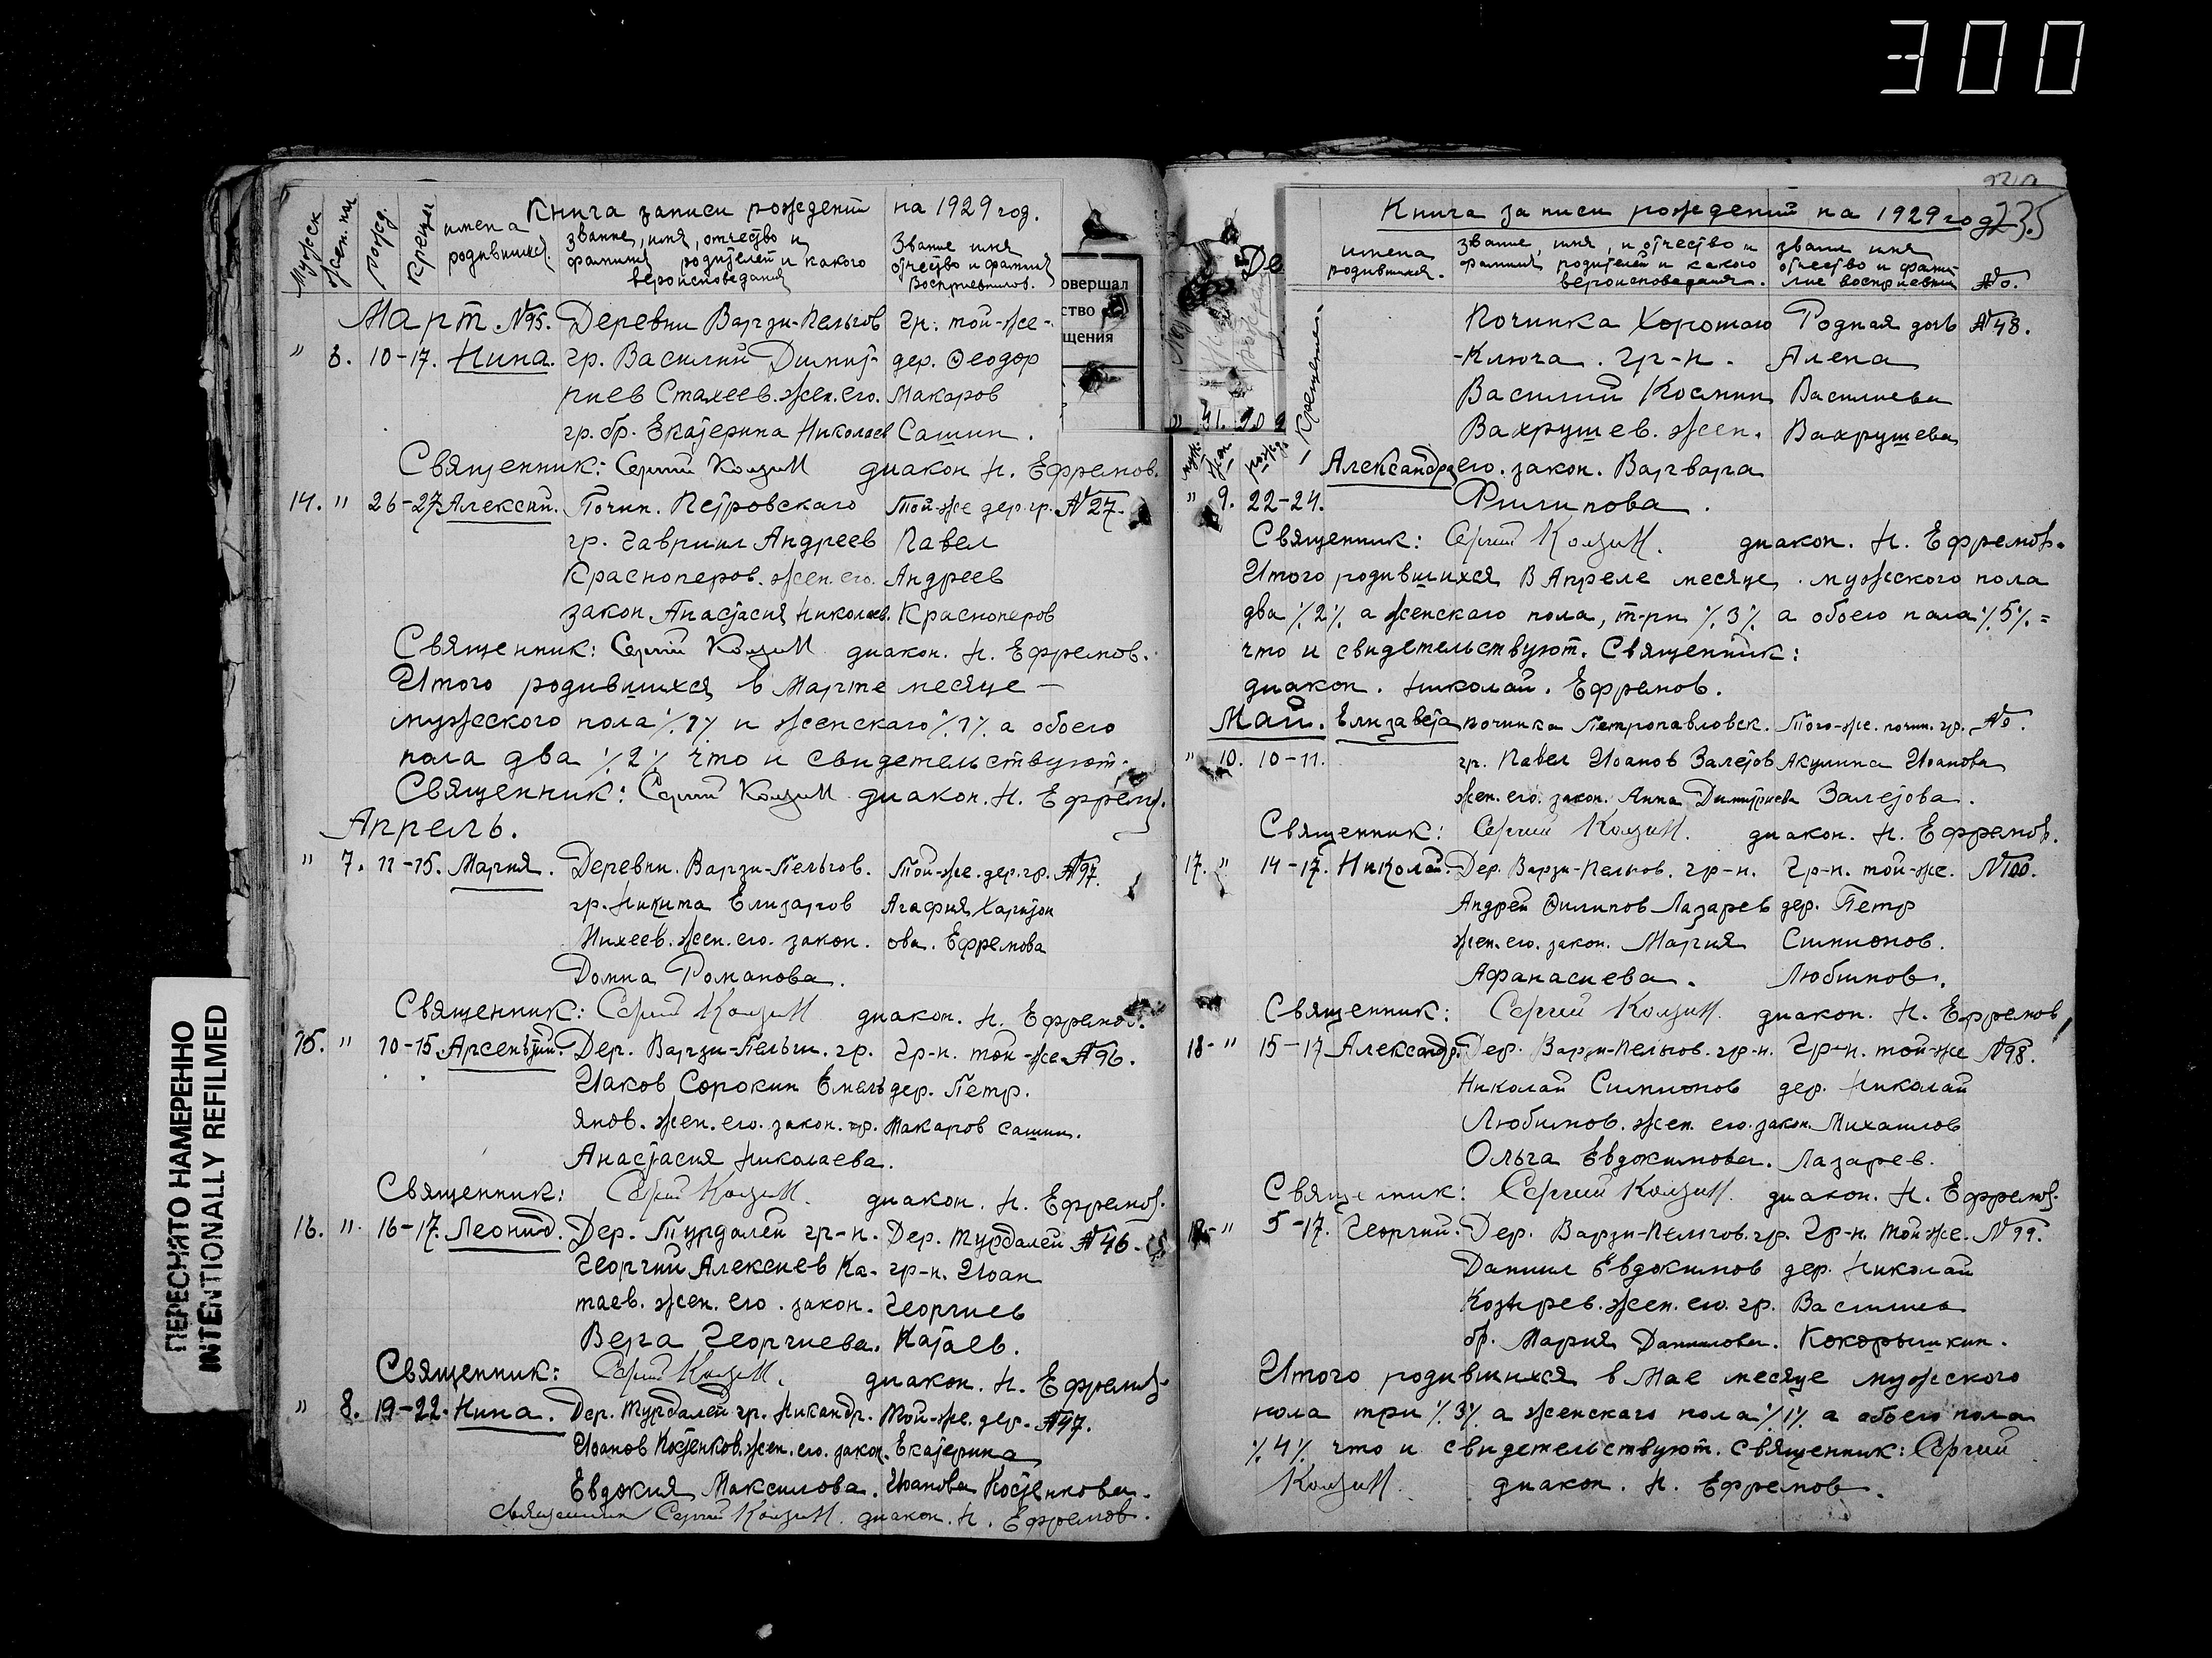 300
Мужск
жен. пол
рожд.
Крещен
имена
родившихся.
Книга записи рождений на 1929 год.
звание, имя, отчество и
фамилия родителей и какого
вероисповедания
Звание имя
отчество и фамилия
Восприемников.
овершал
ство
щения
Март. №95. Деревни Варзи-Пельгов гр. той-же-
" 3. 10-17. Нина. гр. Василий Димит- дер. Феодор
риев Стахеев. жен. его. Макаров
гр. бр. Екатерина Николаев Сашин.
Священник: Сергий диакон Н. Ефремов.
14. " 26-27 Алексий. Почин. Петровскаго Той-же дер. гр. №27.
гр. Гавриил Андреев Павел
Красноперов. жен. его. Андреев
закон. Анастасия Николаев. Красноперов
Священник: Сергий диакон. Н. Ефремов.
Итого родившихся в Марте месяце —
мужского пола ٪1٪ и женскаго ٪1٪ а обоего
пола два ٪2٪ что и свидетельствуют.
Священник: Сергий диакон. Н. Ефремов.
Апрель.
" 7. 11-15. Мария. Деревни. Варзи-Пельгов. Той-же. дер. гр. №97.
гр. Никита Елизаров Агафия Харитон
Михеев. жен. его. закон. ова. Ефремова
Домна Романова.
Священник: Сергий диакон. Н. Ефремов.
15. " 10-15. Арсентий. Дер. Варзи-Пельги. гр. Гр-н. той-же №96.
Иаков Сорокин Емель дер. Петр.
янов. жен. его. закон. гр. Макаров Сашин.
Анастасия Николаева.
Священник: Сергий диакон. Н. Ефремов.
16. " 16-17. Леонид. Дер. Турдалей гр-н. Дер. Турдалей №46.
Георгий Алексиев Ка- гр-н. Иоан
таев. жен. его. закон. Георгиев
Вера Георгиева. Катаев.
Священник: Сергий диакон. Н. Ефремов.
" 8. 19-22. Нина. Дер. Турдалей гр. Никандр. Той-же. дер. №47.
Иоанов Костенков. жен. его. закон. Екатерина
Евдокия Максимова. Иоанова Костенкова.
священник Сергий диакон. Н. Ефремов.
ПЕРЕСНЯТО НАМЕРЕННО
INTENTIONALLY REFILMED
Книга записи рождений на 1929 год
235
имена
родившихся.
звание, имя, и отчество и
фамилия родителей и какого
вероисповедания.
звание имя
отчество и фами-
лие восприемни
№.
Крещен.
муж.
жен
рожд.
Починка Хорошаго Родная дочь №48.
-Ключа. гр-н. Алена
Василий Космин Василиева
Вахрушев. жен. Вахрушева
Александра его. закон. Варвара
" 9. 22-24. Филипова.
Священник: Сергий диакон. Н. Ефремов.
Итого родившихся в Апреле месяце, мужского пола
два ٪2٪ а женскаго пола, три ٪3٪ а обоего пола ٪5٪ =
что и свидетельствуют. Священник:
диакон. Николай. Ефремов.
Май. Елизавета починка Петропавловск. Того-же. почин. гр. №
" 10. 10-11. гр. Павел Иоанов Залетов Акулина Иоанова
жен. его. закон. Анна Димитриева Залетова.
Священник: Сергий диакон. Н. Ефремов.
17. " 14-17. Николай. Дер. Варзи-Пельгов. гр-н. Гр-н. той-же. №100.
Андрей Филипов Лазарев дер. Петр
жен. его. закон. Мария Симионов.
Афанасиева. Любимов.
Священник: Сергий диакон. Н. Ефремов
18- " 15-17 Александр. Дер. Варзи-Пельгов. гр-н. Гр-н. той-же №98.
Николай Симионов дер. Николай
Любимов. жен. его. закон. Михаилов
Ольга Евдокимова. Лазарев.
Священник: Сергий диакон. Н. Ефремов.
" 5-17. Георгий. Дер. Варзи-Пельгов. гр. Гр-н. той-же. №99.
Даниил Евдокимов дер. Николай
Козырев. жен. его. гр. Василиев
бр. Мария Данилова. Кокорышкин.
Итого родившихся в Мае месяце мужского
пола три ٪3٪ а женскаго пола ٪1٪ а обоего пола
٪4٪ что и свидетельствуют. священник: Сергий
диакон. Н. Ефремов.